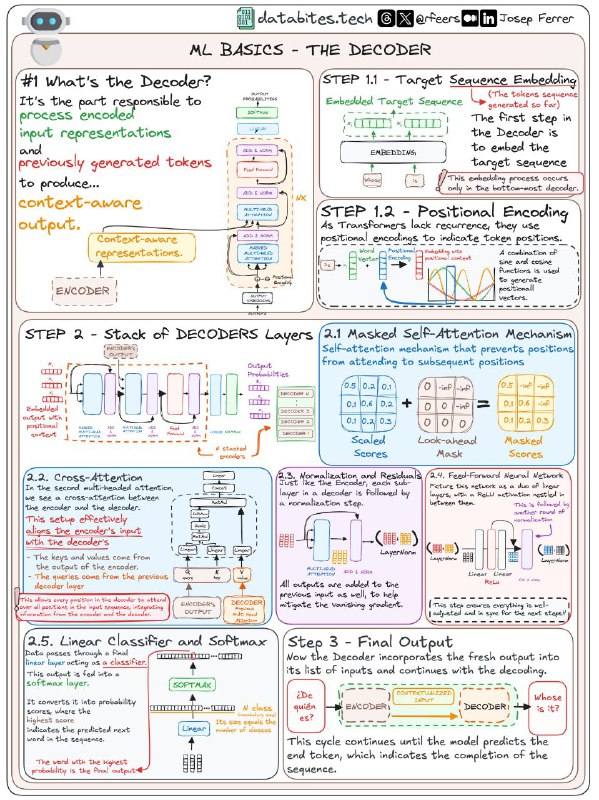 databites.tech @rfeers Josep Ferrer
ML BASICS - THE DECODER
#1 What's the Decoder?
It's the part responsible to
process encoded
input representations
and
previously generated tokens
to produce...
context-aware
output.
Context-aware
representations.
ENCODER
OUTPUT
PROBABILITIES
SOFTMAX
ADD & NORM
Feed Forward
ADD & NORM
MULTI-HEAD
ATTENTION
NX
ADD & NORM
MASKED
MULTI-HEAD
ATTENTION
Positional
Encoding
OUTPUT EMBEDDING
STEP 1.1 - Target Sequence Embedding
Embedded Target Sequence
(The tokens sequence
generated so far)
The first step in
the Decoder is
to embed the
target sequence
EMBEDDING
Whose
is
This embedding process occurs
only in the bottom-most decoder.
STEP 1.2 - Positional Encoding
As Transformers lack recurrence, they use
positional encodings to indicate token positions.
Word
Vector
Positional
Encoding
Embedding with
positional context
A combination of
sine and cosine
functions is used
to generate
positional
vectors.
STEP 2 - Stack of DECODERS Layers
Embedded
output with
positional
context
Output
Probabilities
DECODER N
DECODER 3
DECODER 2
DECODER 1
N stacked
encoders
2.1 Masked Self-Attention Mechanism
Self-attention mechanism that prevents positions
from attending to subsequent positions
0.5 0.2 0.1
0.1 0.6 0.2
0.1 0.2 0.3
+
0 -inf -inf
0 0 -inf
0 0 0
=
0.5 -inf -inf
0.1 0.6 -inf
0.1 0.2 0.3
Scaled
Scores
Look-ahead
Mask
Masked
Scores
2.2. Cross-Attention
In the second multi-headed attention,
we see a cross-attention between
the encoder and the decoder.
This setup effectively
aligns the encoder's input
with the decoder's
- The keys and values come from
the output of the encoder.
- The queries come from the previous
decoder layer
This allows every position in the decoder to attend
over all positions in the input sequence, integrating
information from the encoder and the decoder.
Linear
Concat
MatMul
SoftMax
Linear
Linear
Linear
ENCODER'S
OUTPUT
DECODER
2.3. Normalization and Residuals
Just like the Encoder, each sub-
layer in a decoder is followed by
a normalization step.
MULTI-HEAD
ATTENTION
ADD & NORM
LayerNorm
All outputs are added to the
previous input as well, to help
mitigate the vanishing gradient.
2.4. Feed-Forward Neural Network
Picture this network as a duo of linear
layers, with a ReLU activation nestled in
between them.
This is followed by
another round of
normalization
Linear Linear
ReLU
LayerNorm
This step ensures everything is well-
adjusted and in sync for the next steps!
2.5. Linear Classifier and Softmax
Data passes through a final
linear layer acting as a classifier.
This output is fed into a
softmax layer.
It converts it into probability
scores, where the
highest score
indicates the predicted next
word in the sequence.
The word with the highest
probability is the final output
SOFTMAX
Linear
N class
Its size equals the
number of classes
Step 3 - Final Output
Now the Decoder incorporates the fresh output into
its list of inputs and continues with the decoding.
¿De
quién
es?
ENCODER
CONTEXTUALIZED
INPUT
DECODER
Whose
is it?
This cycle continues until the model predicts the
end token, which indicates the completion of the
sequence.